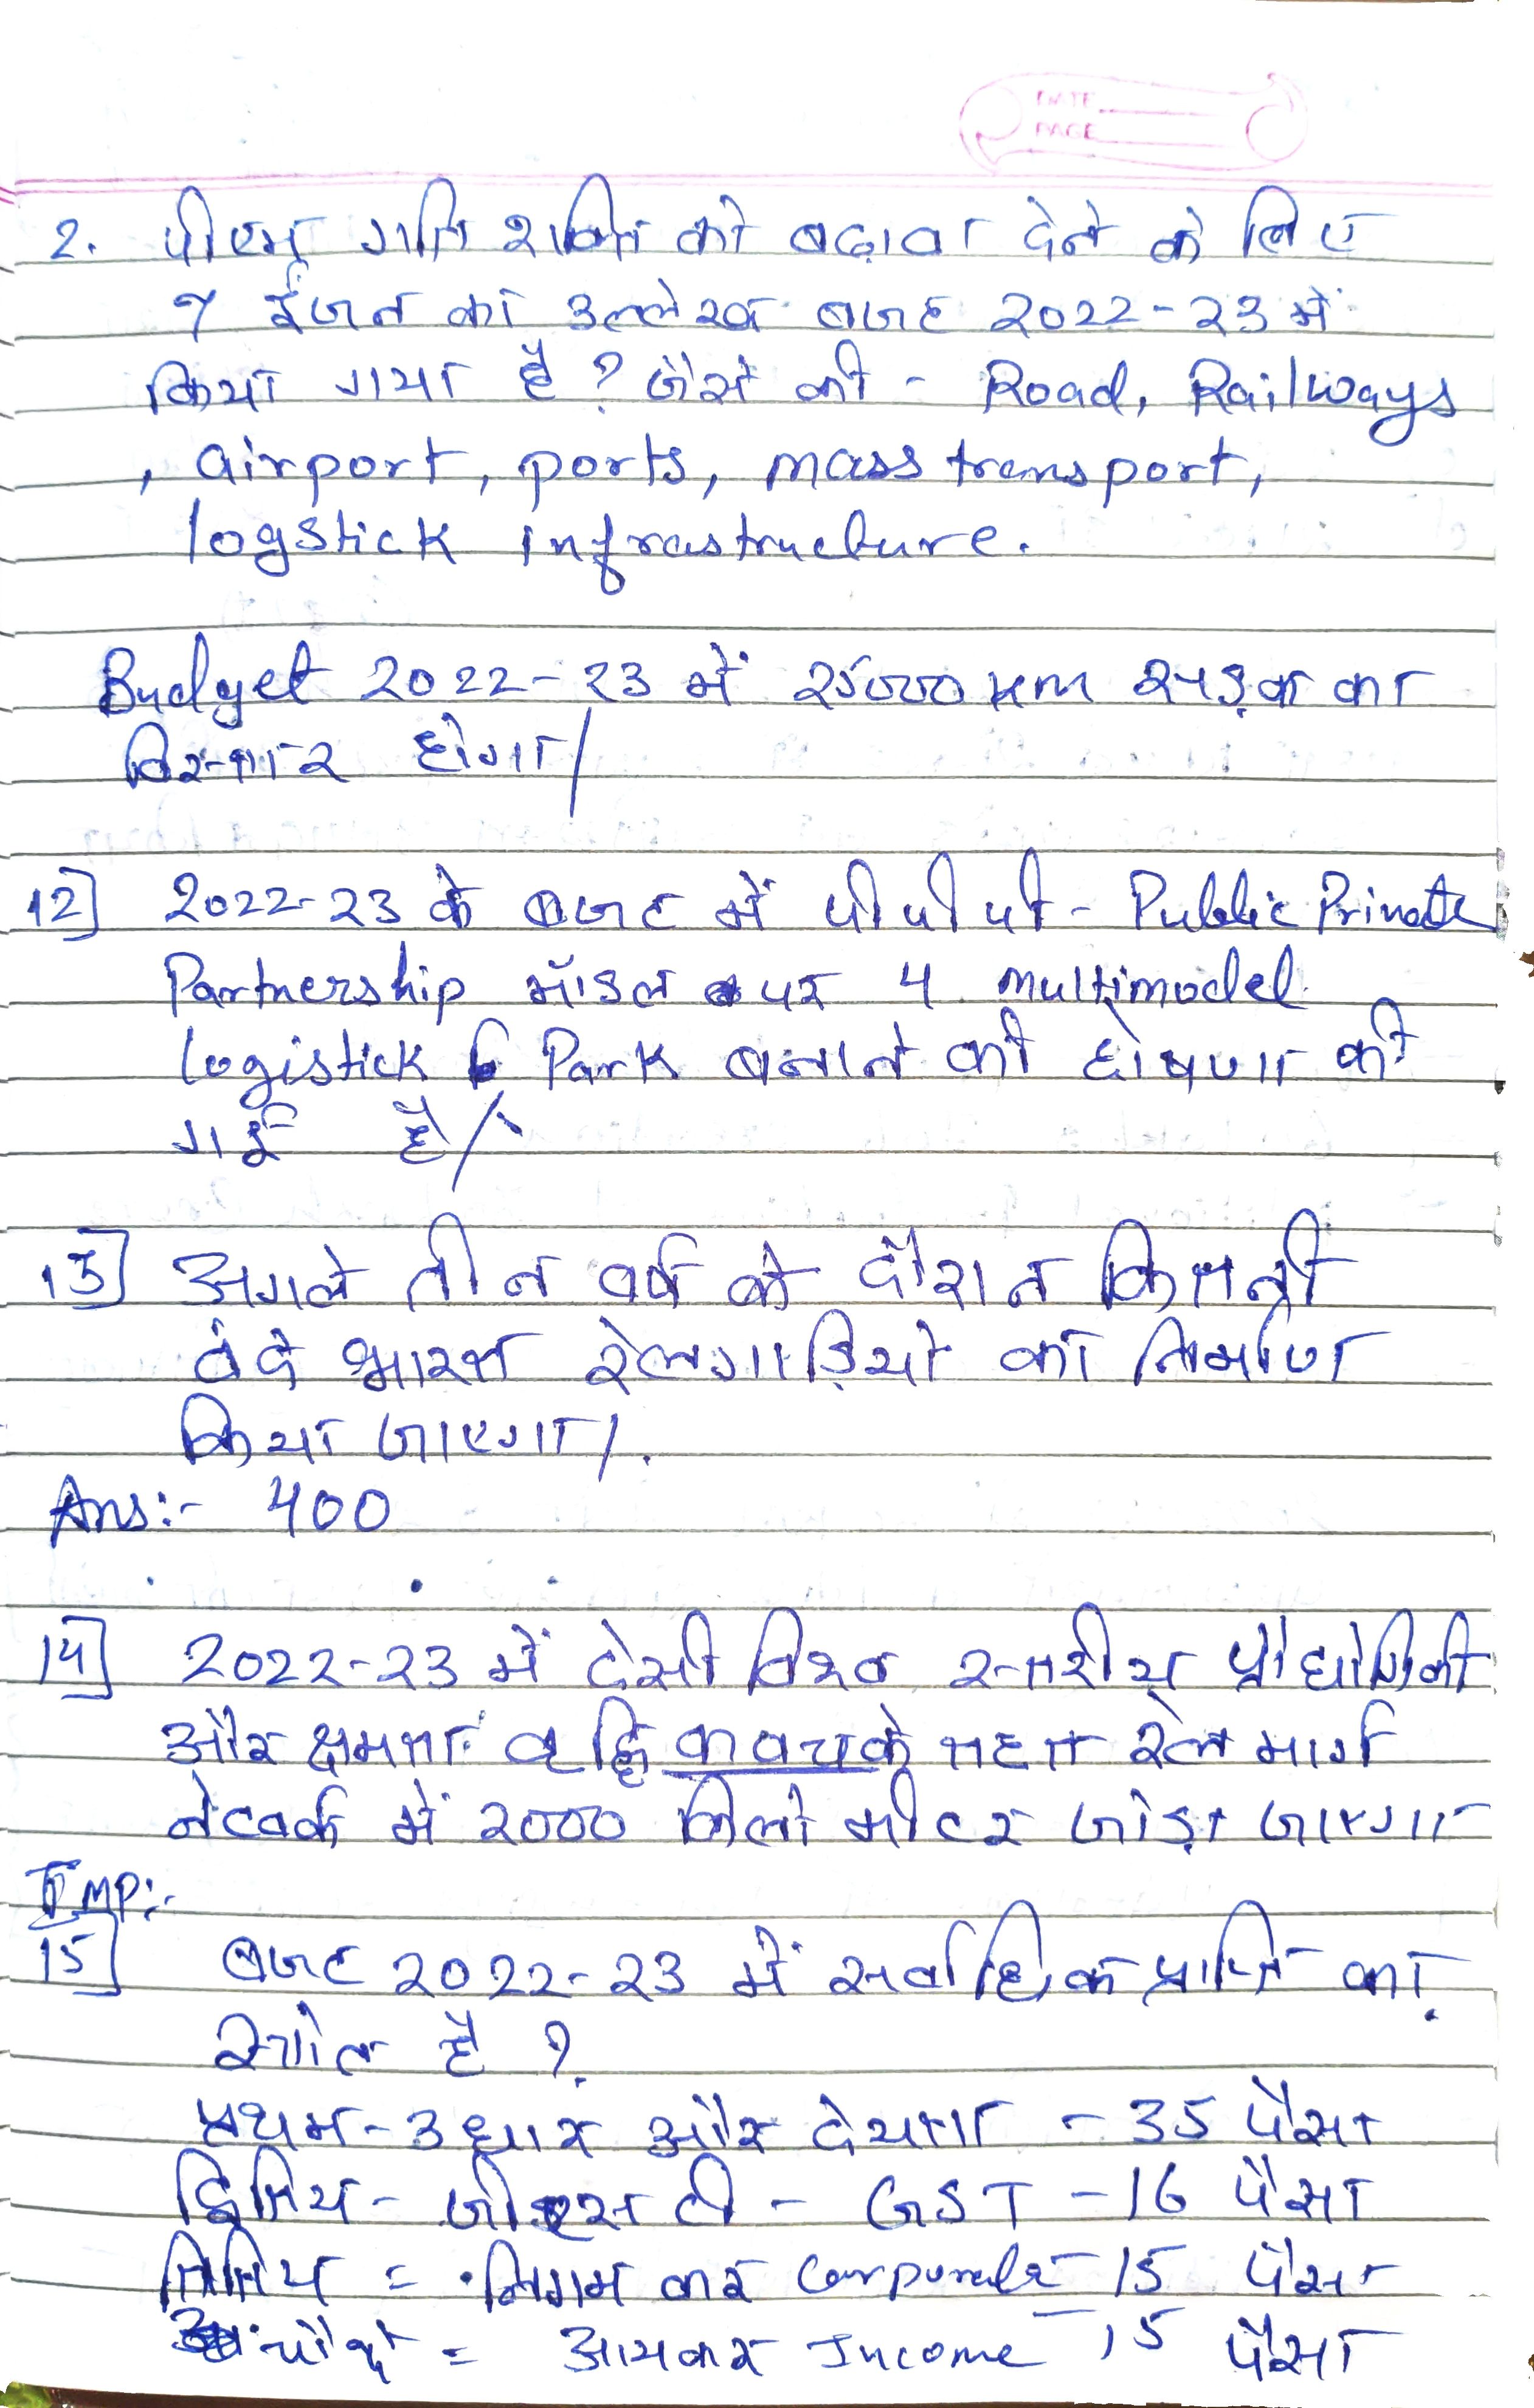 DATE
PAGE
2. पीएम गति शक्ति को बढ़ावा देने के लिए
7 ईंजन का उल्लेख बजट 2022-23 में
किया गया है ? जैसे की - Road, Railways
, airport, ports, mass transport,
logstick infrastructure.
Budget 2022-23 में 25000 km सड़क का
विस्तार होगा/
12] 2022-23 के बजट में पीपीपी - Public Private
Partnership मॉडल पर 4 multimodel
logistick Park बनाने की घोषणा की
गई है/
13] अगले तीन वर्ष के दौरान कितनी
वंदे भारत रेलगाड़ियो का निर्माण
किया जाएगा/.
Ans:- 400
14] 2022-23 में देसी विश्व स्तरीय प्रौद्योगिकी
और क्षमता वृद्धि कवच के तहत रेल मार्ग
नेटवर्क में 2000 किलो मीटर जोड़ा जाएगा
Imp:-
15] बजट 2022-23 में सर्वाधिक प्राप्ति का
स्त्रोत है ?
प्रथम - उधार और देयता - 35 पैसा
द्वितिय - जीएसटी - GST - 16 पैसा
त्रितिय = निगम कर Corporate 15 पैसा
चौथे = आयकर Income 15 पैसा